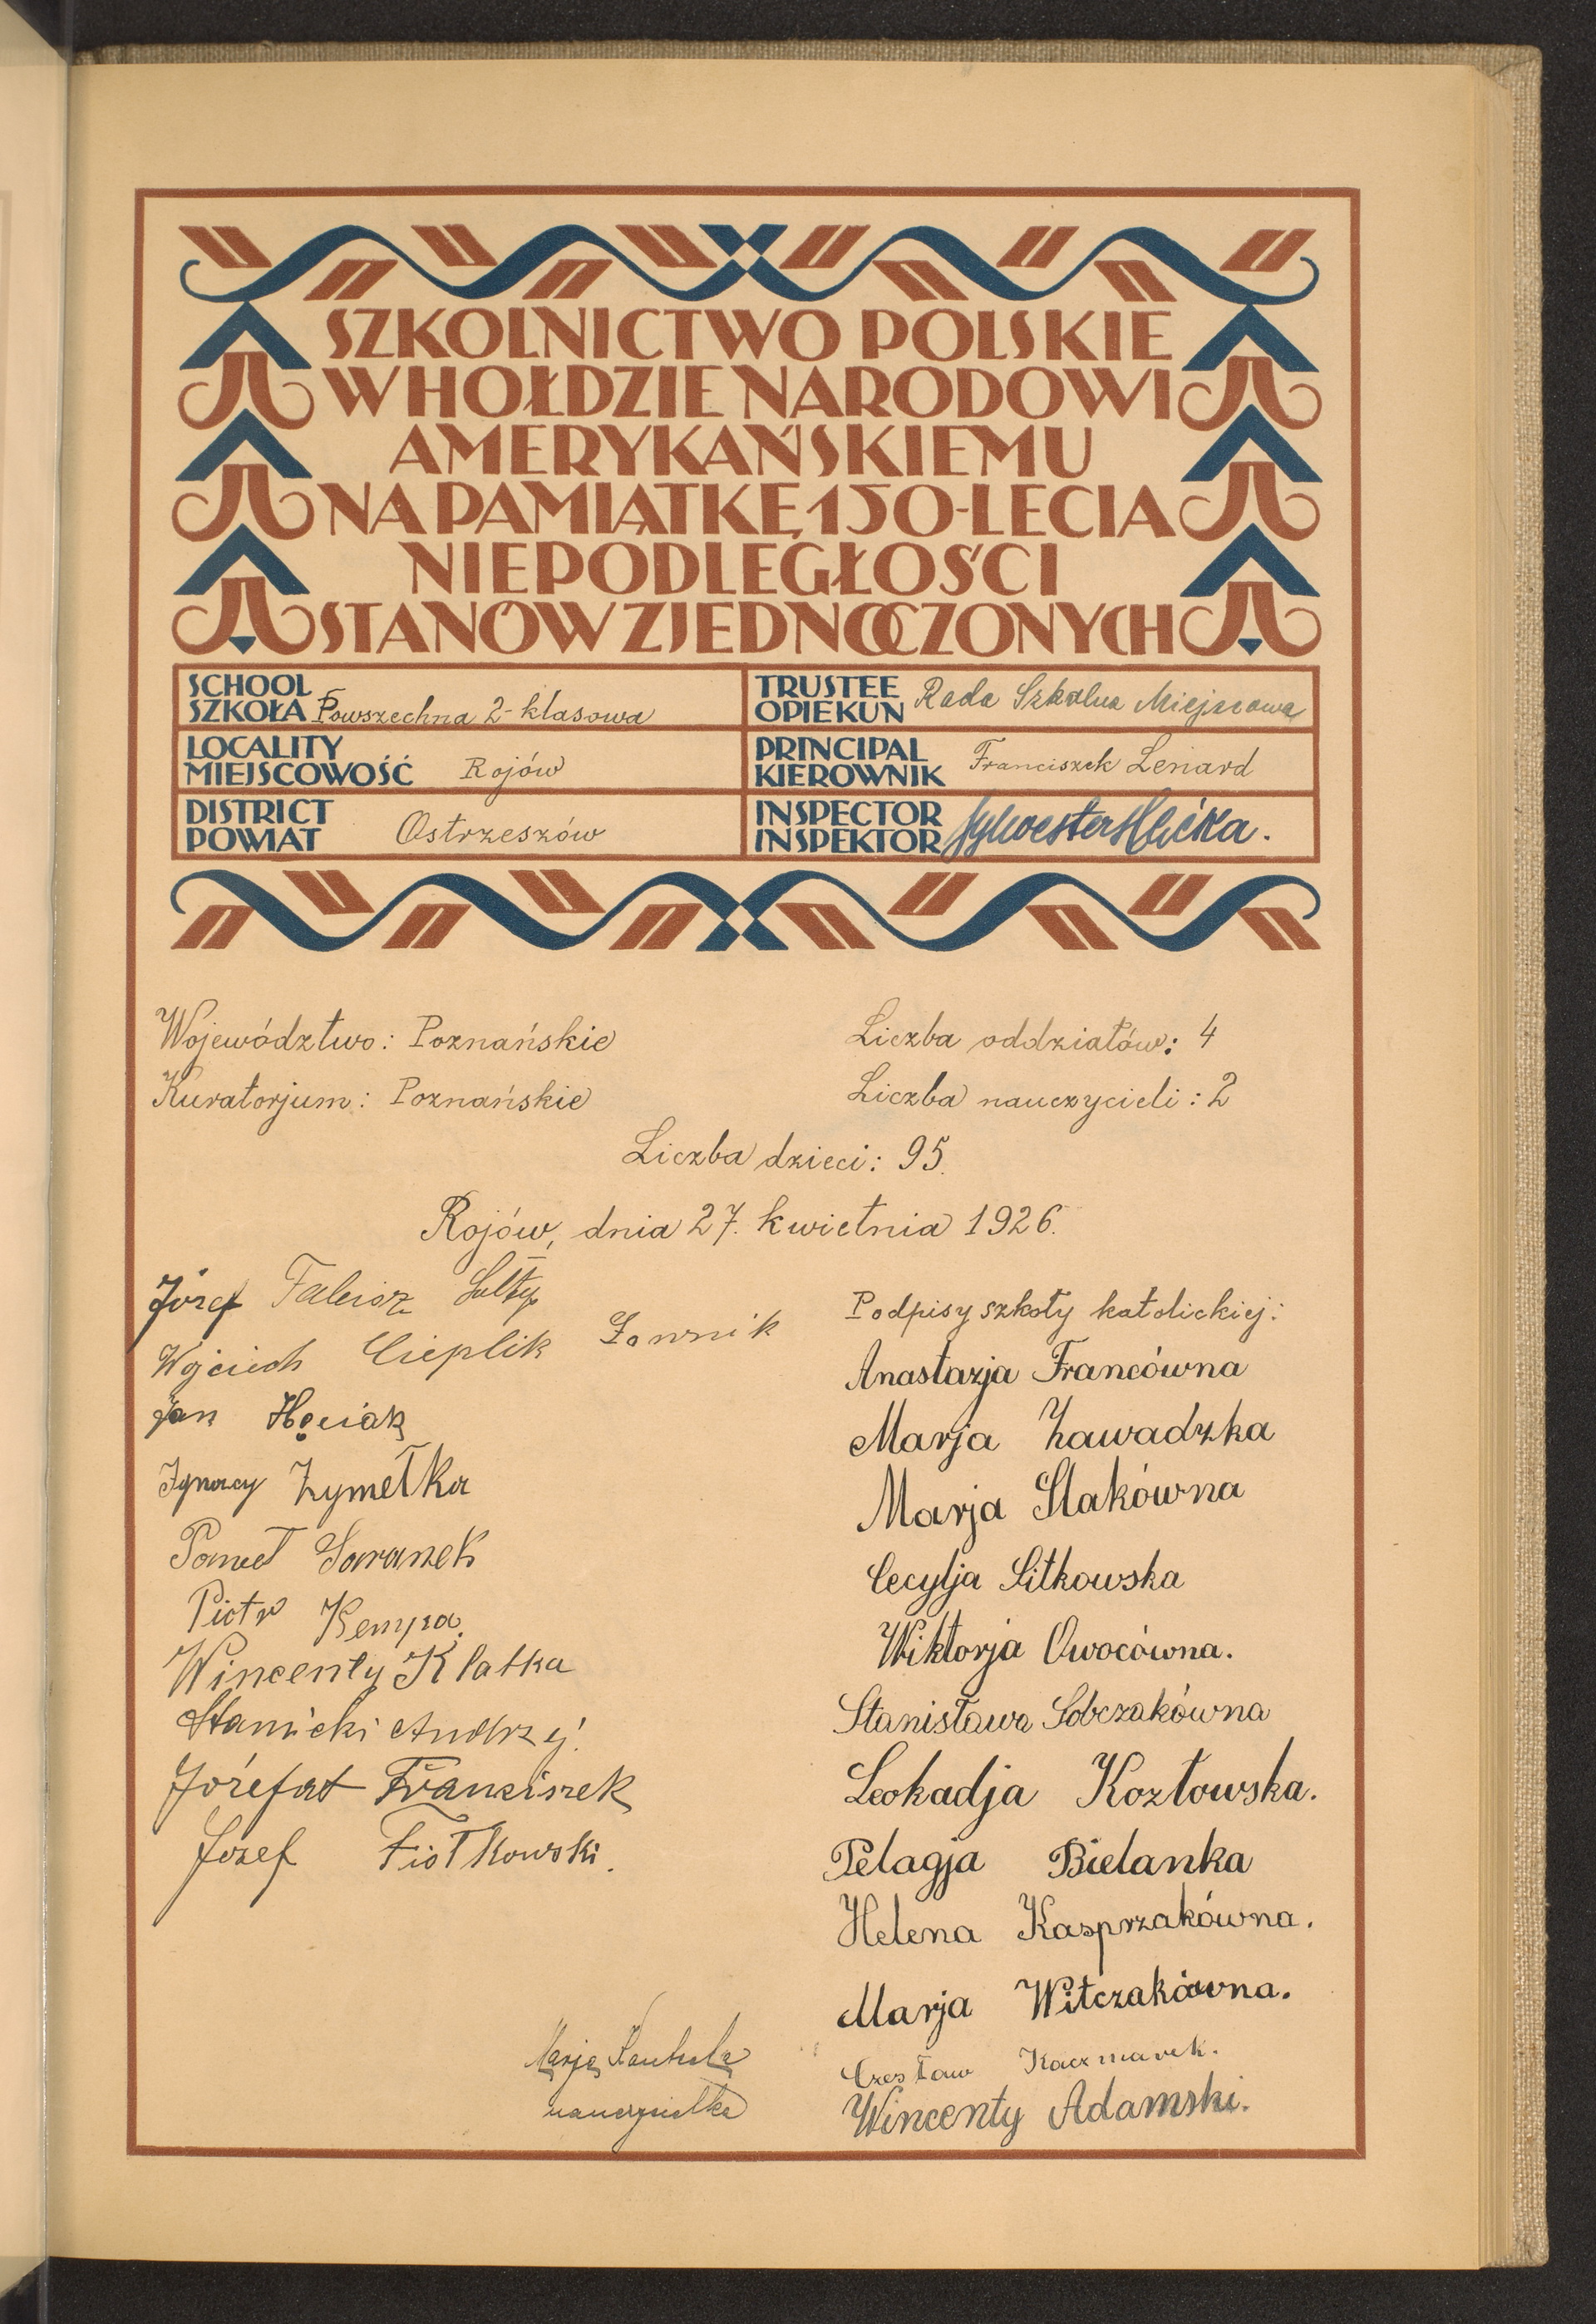 SZKOLNICTWO POLSKIE
W HOŁDZIE NARODOWI
AMERYKAŃSKIEMU
NA PAMIĄTKĘ 150-LECIA
NIEPODLEGŁOŚCI
STANÓW ZJEDNOCZONYCH
SCHOOL
SZKOŁA Powszechna 2-klasowa
TRUSTEE
OPIEKUN Rada Szkolna Miejscowa
LOCALITY
MIEJSCOWOŚĆ Rojów
PRINCIPAL
KIEROWNIK Franciszek Lenard
DISTRICT
POWIAT Ostrzeszów
INSPECTOR
INSPEKTOR Sylwester
Województwo: Poznańskie
Liczba oddziałów: 4
Kuratorjum: Poznańskie
Liczba nauczycieli: 2
Liczba dzieci: 95.
Rojów, dnia 27. kwietnia 1926.
Józef
Wojciech Cieplik
Jan
Ignacy Zymełka
Paweł
Piotr Kempa.
Wincenty Klatka
Andrzej.
Józefat Franciszek
Józef Fiołkowski.
Podpisy szkoły katolickiej:
Anastazja Francówna
Marja Zawadzka
Marja Stakówna
Cecylja Sitkowska
Wiktorja Owocówna.
Stanisława Sobczakówna
Leokadja Kozłowska.
Pelagja Bielanka
Helena Kasprzakówna.
Marja Witczakówna.
Czesław Kaczmarek.
Wincenty Adamski.
Marja
nauczycielka